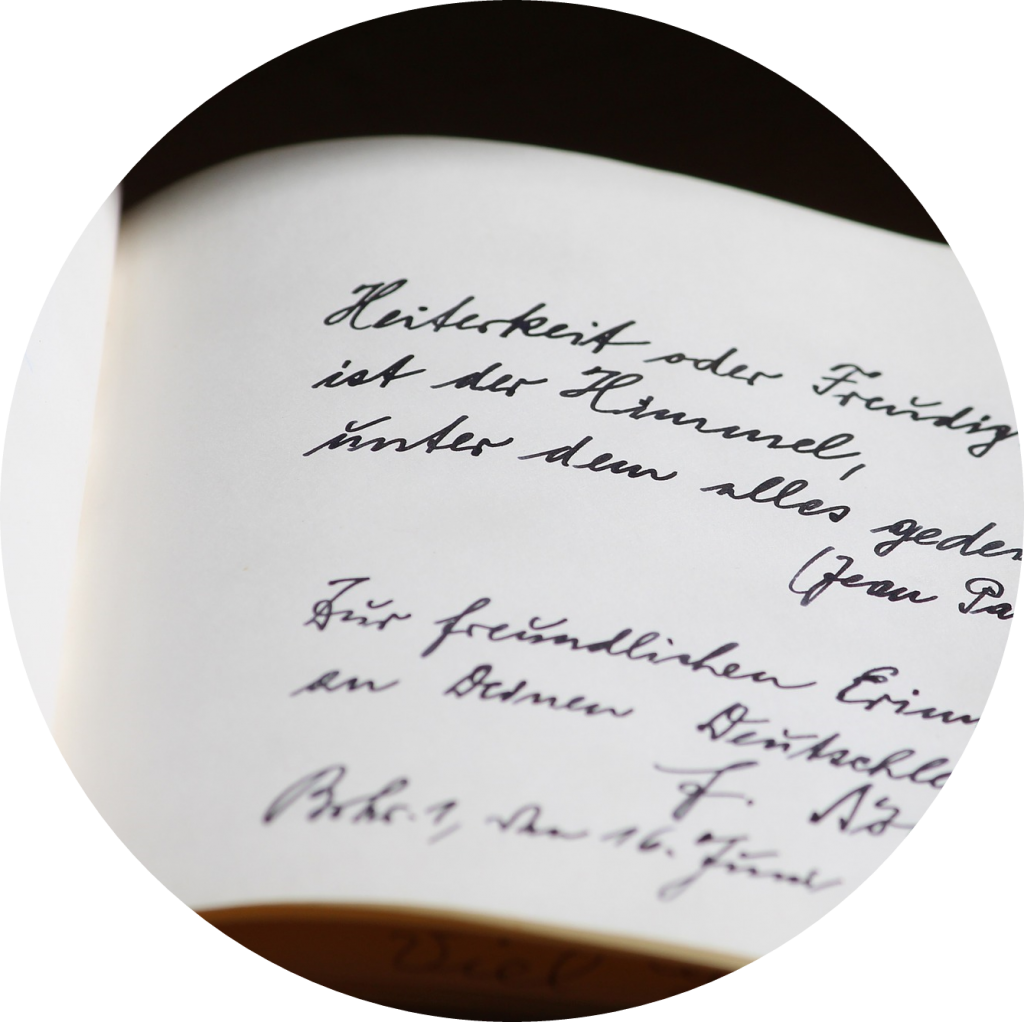 Heiterkeit oder Freudig
ist der Himmel,
unter dem alles gedei
(Jean Pa
Zur freundlichen Erinn
an Deinen Deutschle
F.
den 16. Juni
Viel